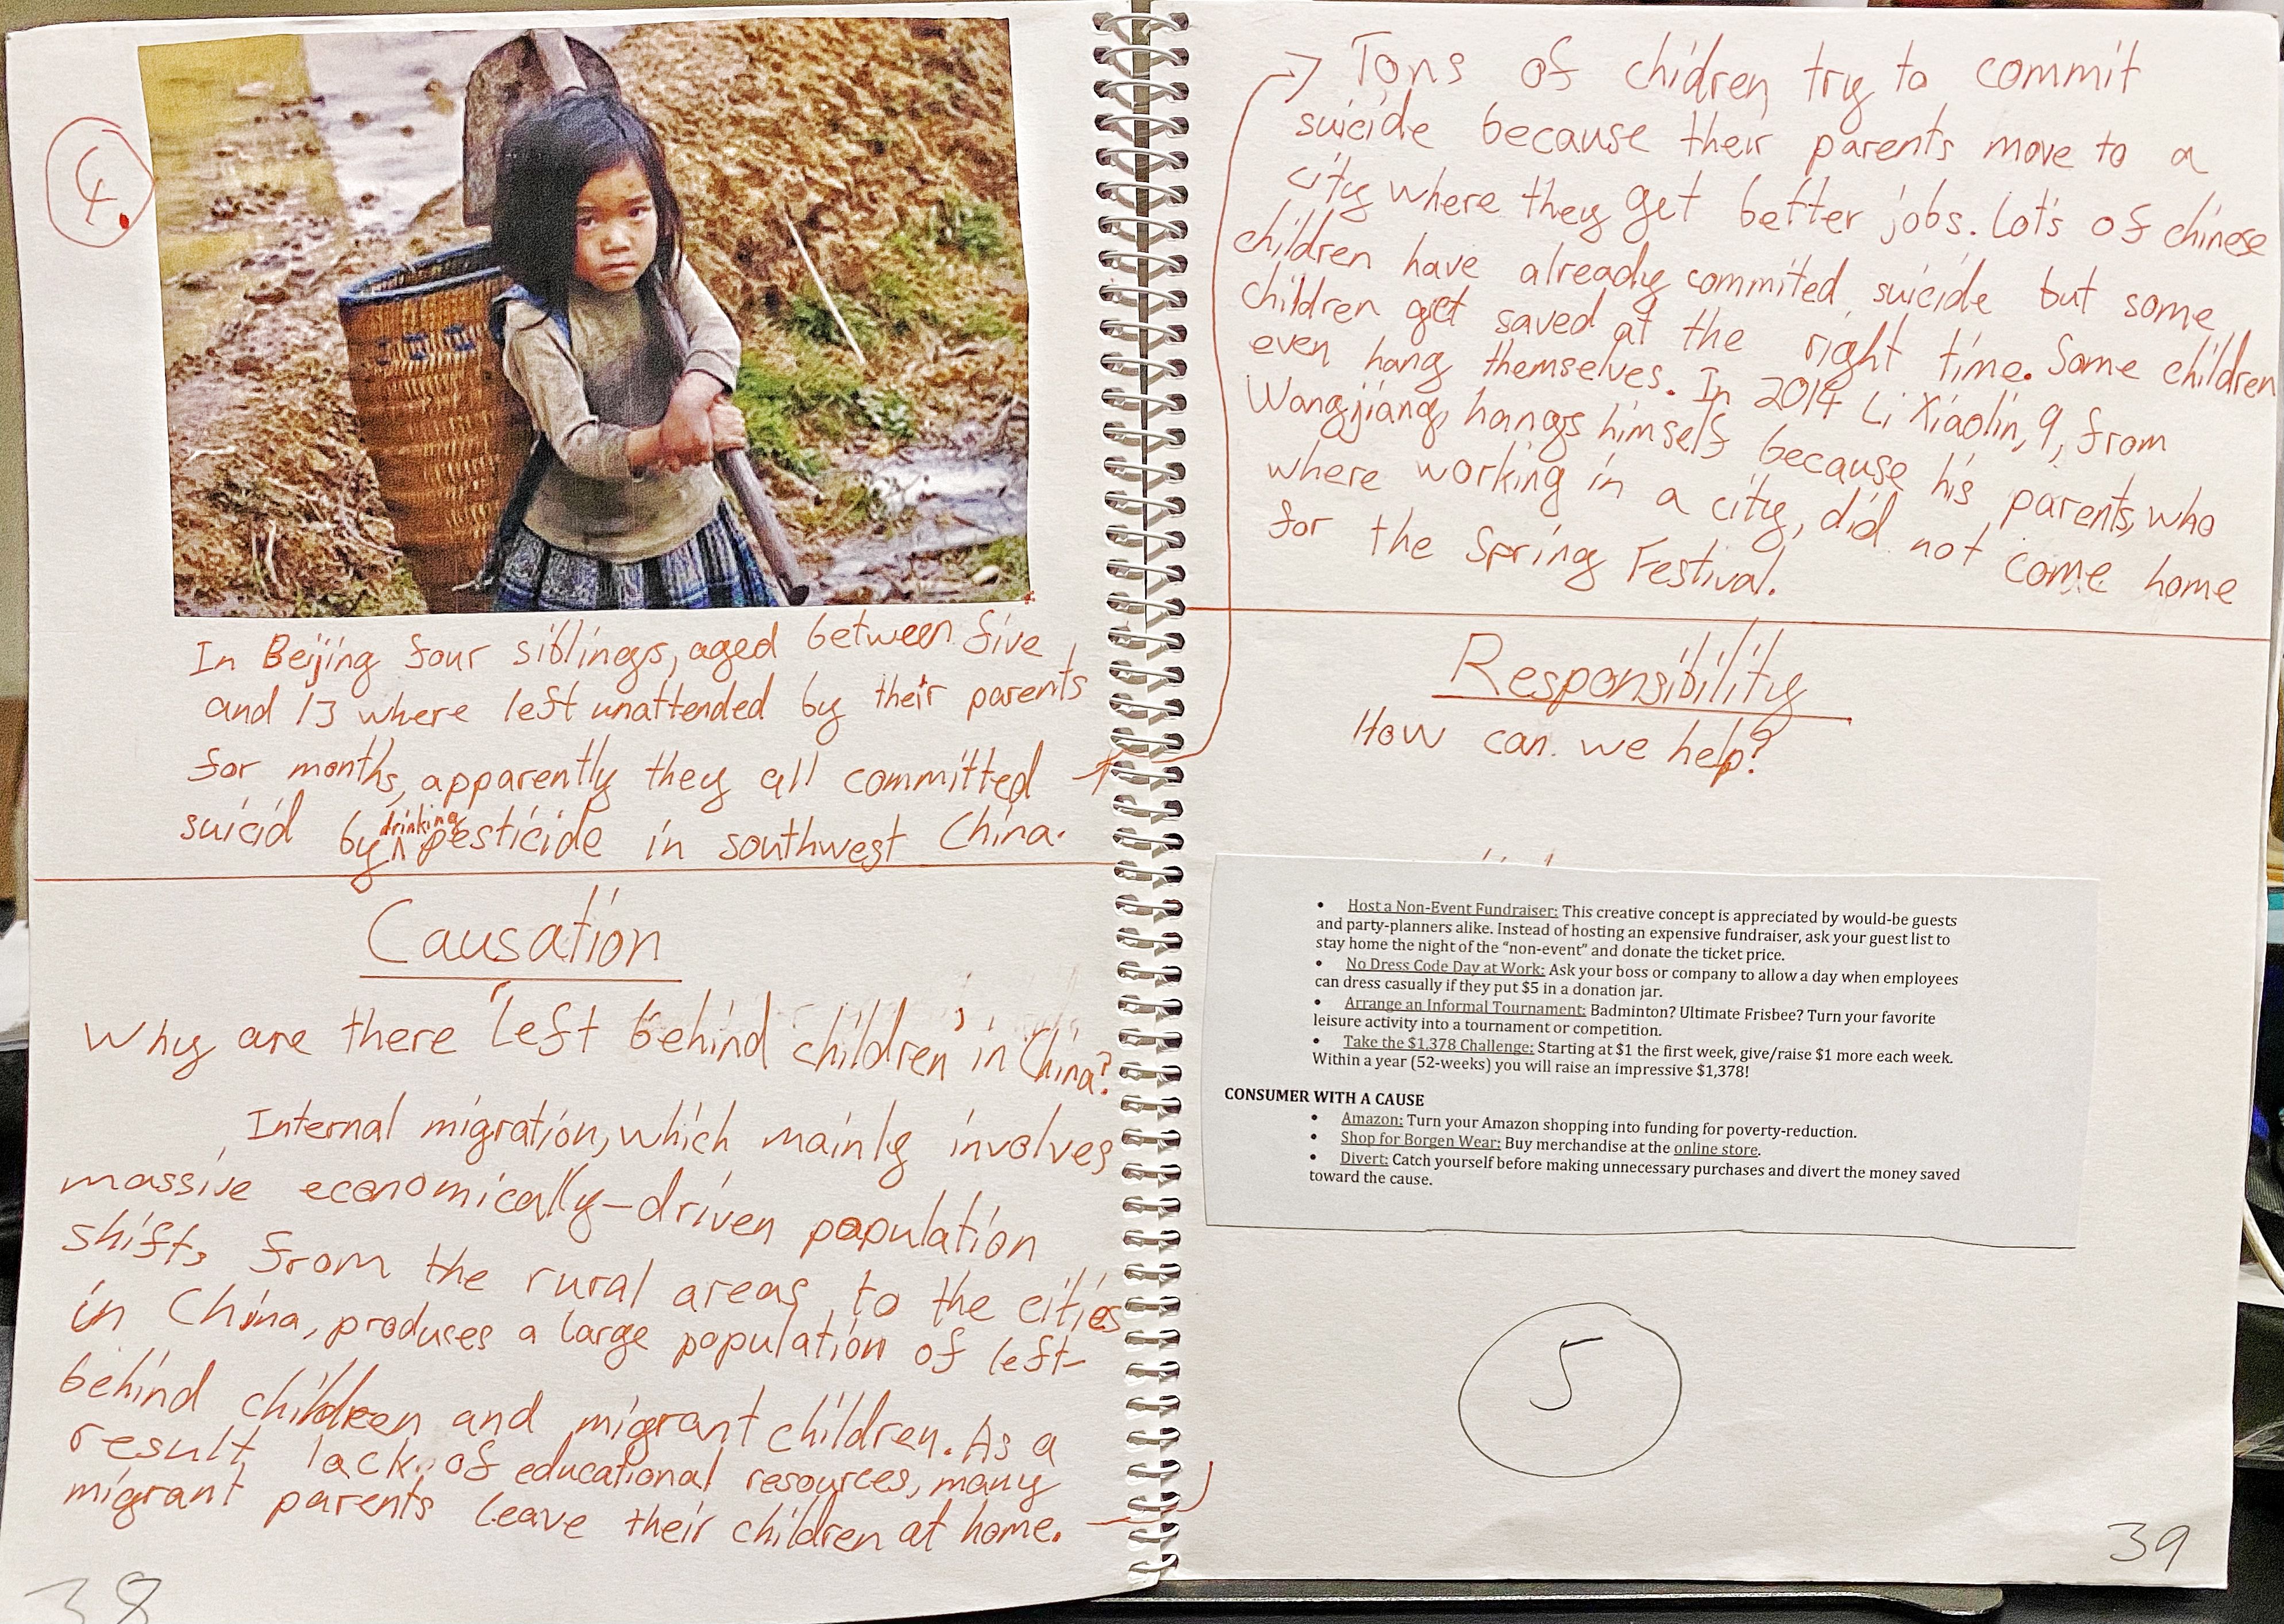 4.
In Beijing four siblings, aged between five
and 13 where left unattended by their parents
for months, apparently they all committed
suicid by drinking pesticide in southwest China.
Causation
Why are there "left behind children" in China?
Internal migration, which mainly involves
massive economically-driven population
shifts from the rural areas to the cities
in China, produces a large population of left-
behind children and migrant children. As a
result lack of educational resources, many
migrant parents leave their children at home.
38
Tons of chidren try to commit
suicide because their parents move to a
city where they get better jobs. Lot's of chinese
children have already commited suicide but some
children get saved at the right time. Some children
even hang themselves. In 2014 Li Xiaolin, 9, from
Wangjiang, hangs himself because his parents, who
where working in a city, did not come home
for the Spring Festival.
Responsibility
How can we help?
• Host a Non-Event Fundraiser: This creative concept is appreciated by would-be guests
and party-planners alike. Instead of hosting an expensive fundraiser, ask your guest list to
stay home the night of the "non-event" and donate the ticket price.
• No Dress Code Day at Work: Ask your boss or company to allow a day when employees
can dress casually if they put $5 in a donation jar.
• Arrange an Informal Tournament: Badminton? Ultimate Frisbee? Turn your favorite
leisure activity into a tournament or competition.
• Take the $1,378 Challenge: Starting at $1 the first week, give/raise $1 more each week.
Within a year (52-weeks) you will raise an impressive $1,378!
CONSUMER WITH A CAUSE
• Amazon: Turn your Amazon shopping into funding for poverty-reduction.
• Shop for Borgen Wear: Buy merchandise at the online store.
• Divert: Catch yourself before making unnecessary purchases and divert the money saved
toward the cause.
5
39